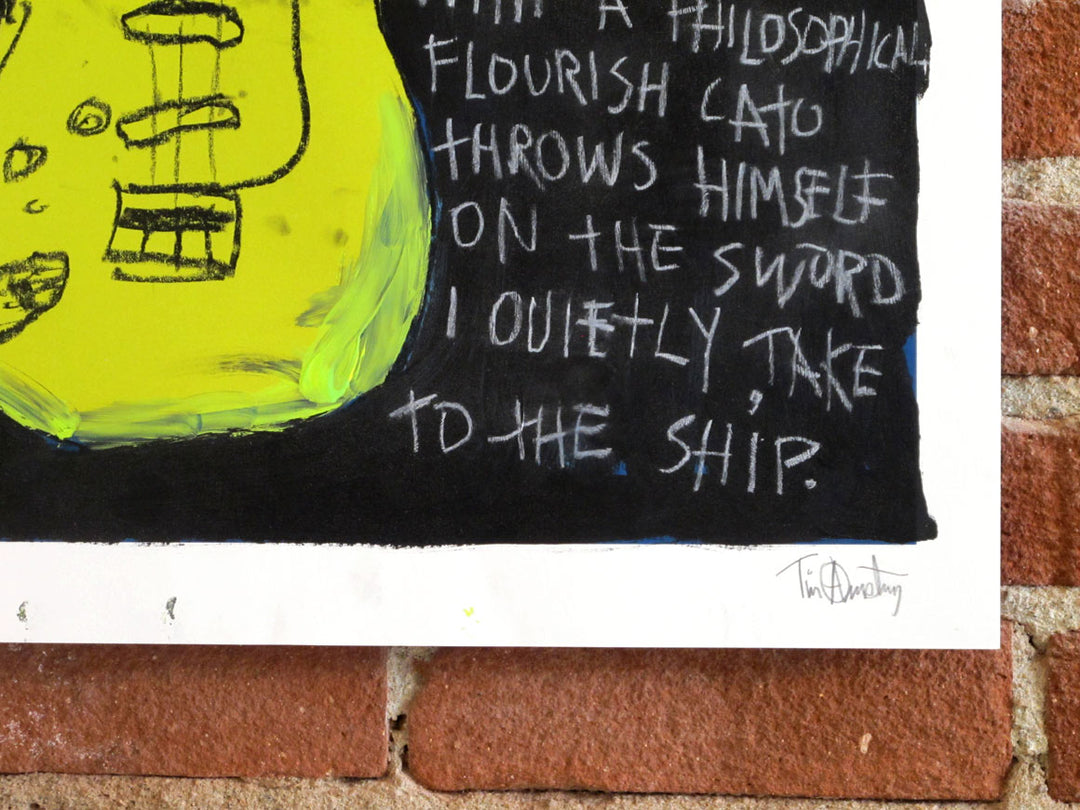 WITH A PHILOSOPHICAL
FLOURISH CATO
THROWS HIMSELF
ON THE SWORD
I QUIETLY, TAKE
TO THE SHIP.